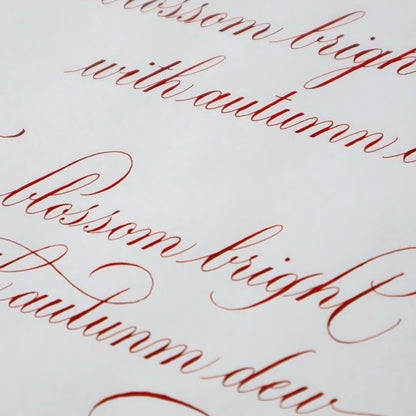 blossom brigh
with autumn
blossom bright
autunm dew